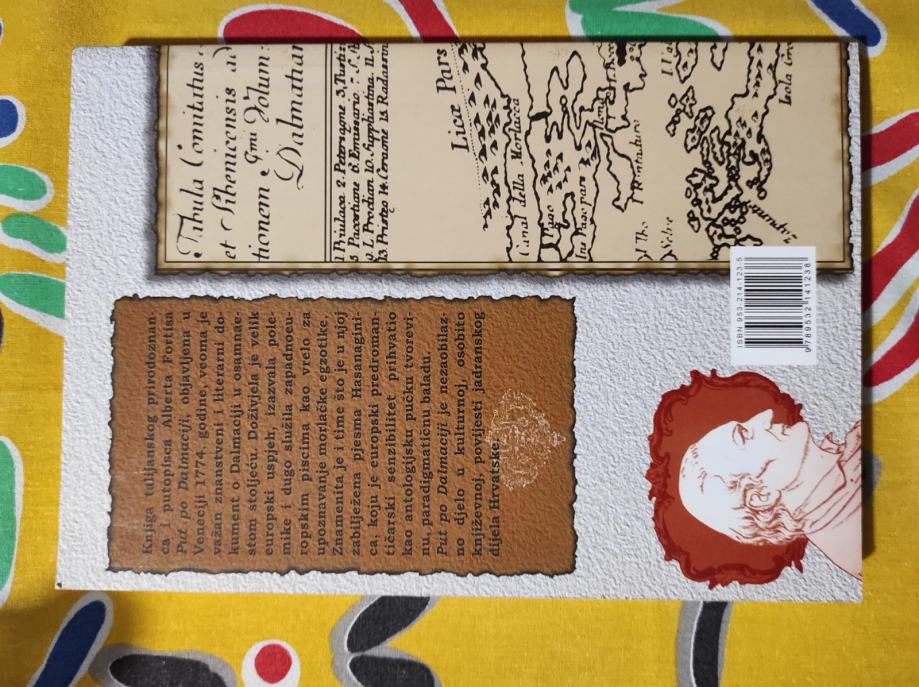 Tabula Comitatus
et Sibenicensis
tionem Gmi Volum:
Dalmatian
Lica Pars
Canal della Morlaca
Knjiga talijanskog prirodoznan-
ca i putopisca Alberta Fortisa
Put po Dalmaciji, objavljena u
Veneciji 1774. godine, veoma je
važan znanstveni i literarni do-
kument o Dalmaciji u osamnae-
stom stoljeću. Doživjela je velik
europski uspjeh, izazvala pole-
mike i dugo služila zapadnoeu-
ropskim piscima kao vrelo za
upoznavanje morlačke egzotike.
Znamenita je i time što je u njoj
zabilježena pjesma Hasanagini-
ca, koju je europski predroman-
tičarski senzibilitet prihvatio
kao antologijsku pučku tvorevi-
nu, paradigmatičnu baladu.
Put po Dalmaciji je nezaobilaz-
no djelo u kulturnoj, osobito
književnoj, povijesti jadranskog
dijela Hrvatske.
ISBN 953-214-123-5
9789532141238